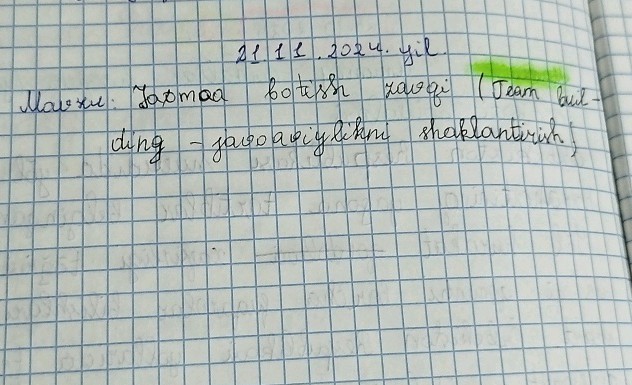 21.11.2024. yil.
Mavzu: Jaomaa botish zavqi (Team buil-
ding - javoaviylikni shaklantirish)